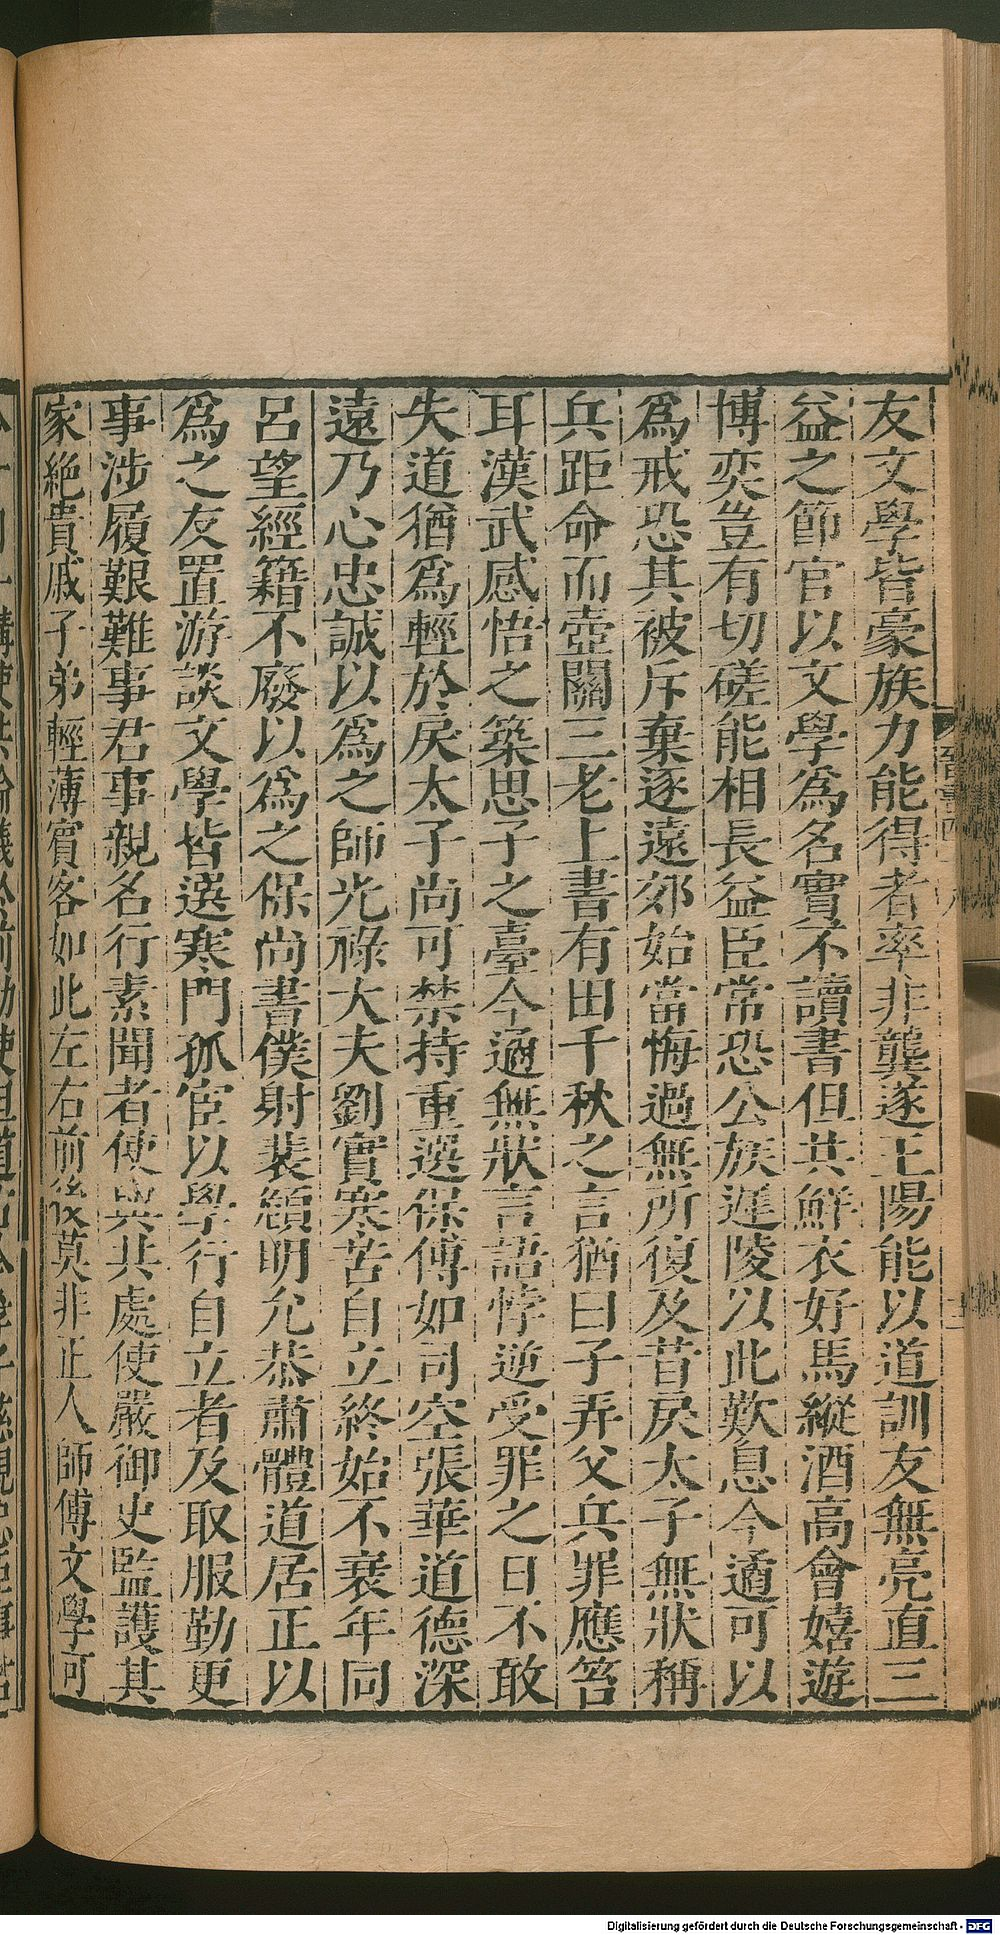 友文學皆豪族力能得者率非龔遂王陽能以道訓友無亮直三
益之節官以文學爲名實不讀書但共鮮衣好馬縱酒高會嬉遊
博奕豈有切磋能相長益臣常恐公族遲陵以此歎息今遹可以
爲戒恐其被斥棄逐遠郊始當悔過無所復及昔戾太子無狀稱
兵距命而壺關三老上書有田千秋之言猶曰子弄父兵罪應笞
耳漢武感悟之築思子之臺今遹無狀言語悖逆受罪之日不敢
失道猶爲輕於戾太子尚可禁持重選保傅如司空張華道德深
遠乃心忠誠以爲之師光祿大夫劉寔寒苦自立終始不衰年同
呂望經籍不廢以爲之保尚書僕射裴頠明允恭肅體道居正以
爲之友置游談文學皆選寒門孤宦以學行自立者及取服勤更
事涉履艱難事君事親名行素聞者使與共處使嚴御史監護其
家絶貴戚子弟輕薄賓客如此左右前後莫非正人師傅文學可
Digitalisierung gefördert durch die Deutsche Forschungsgemeinschaft - DFG